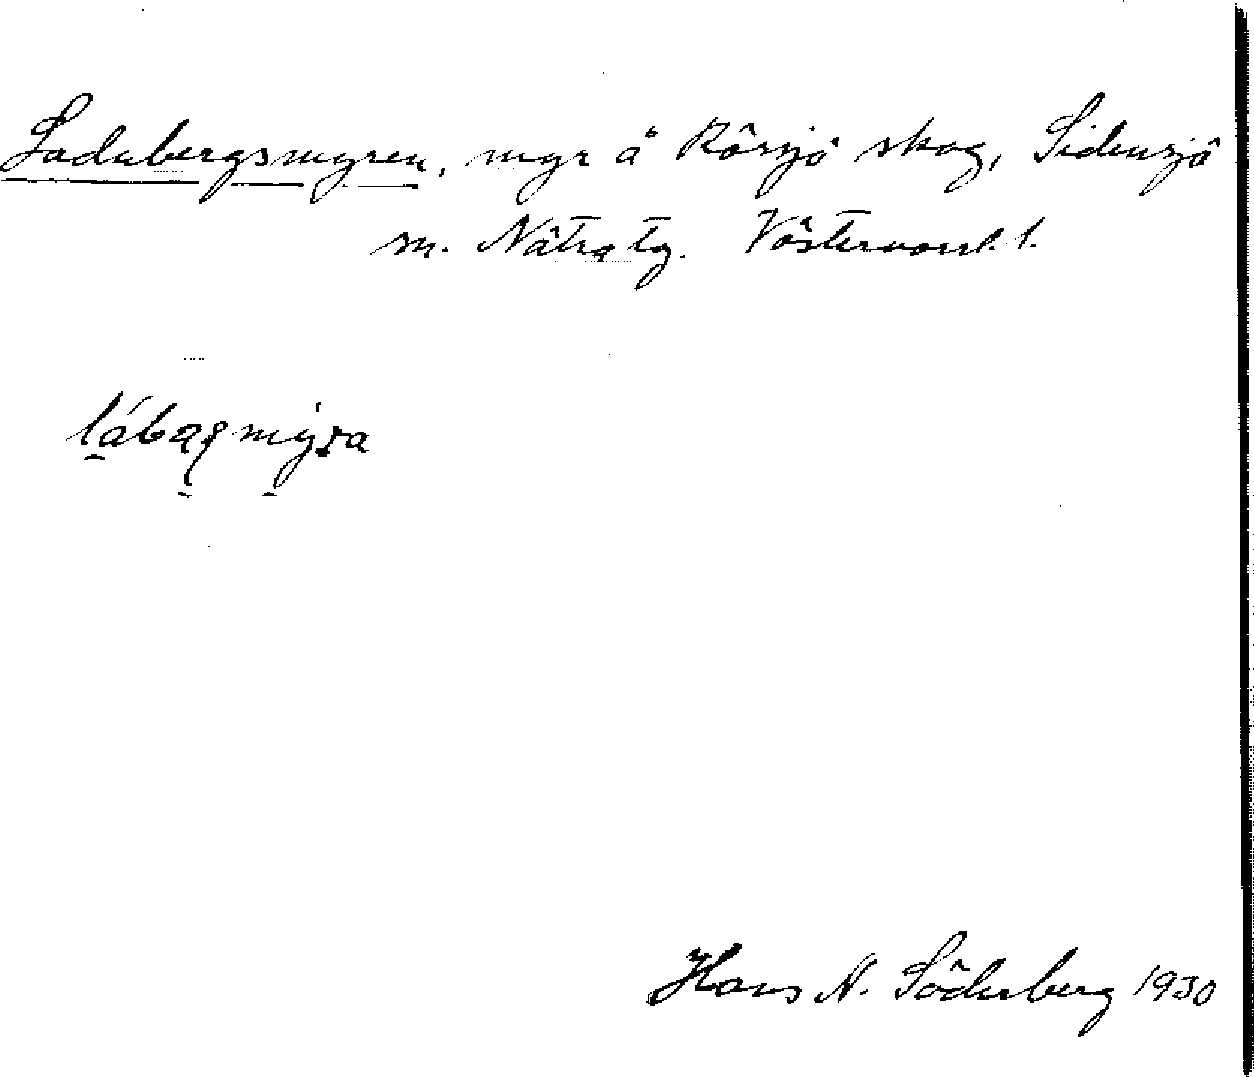 Ladubergsmyren, myr å Rörsjö skog, Sidensjö
m. Nätra tg. Västernorrl. l.
lábagmýra
Hans N. Söderberg 1930